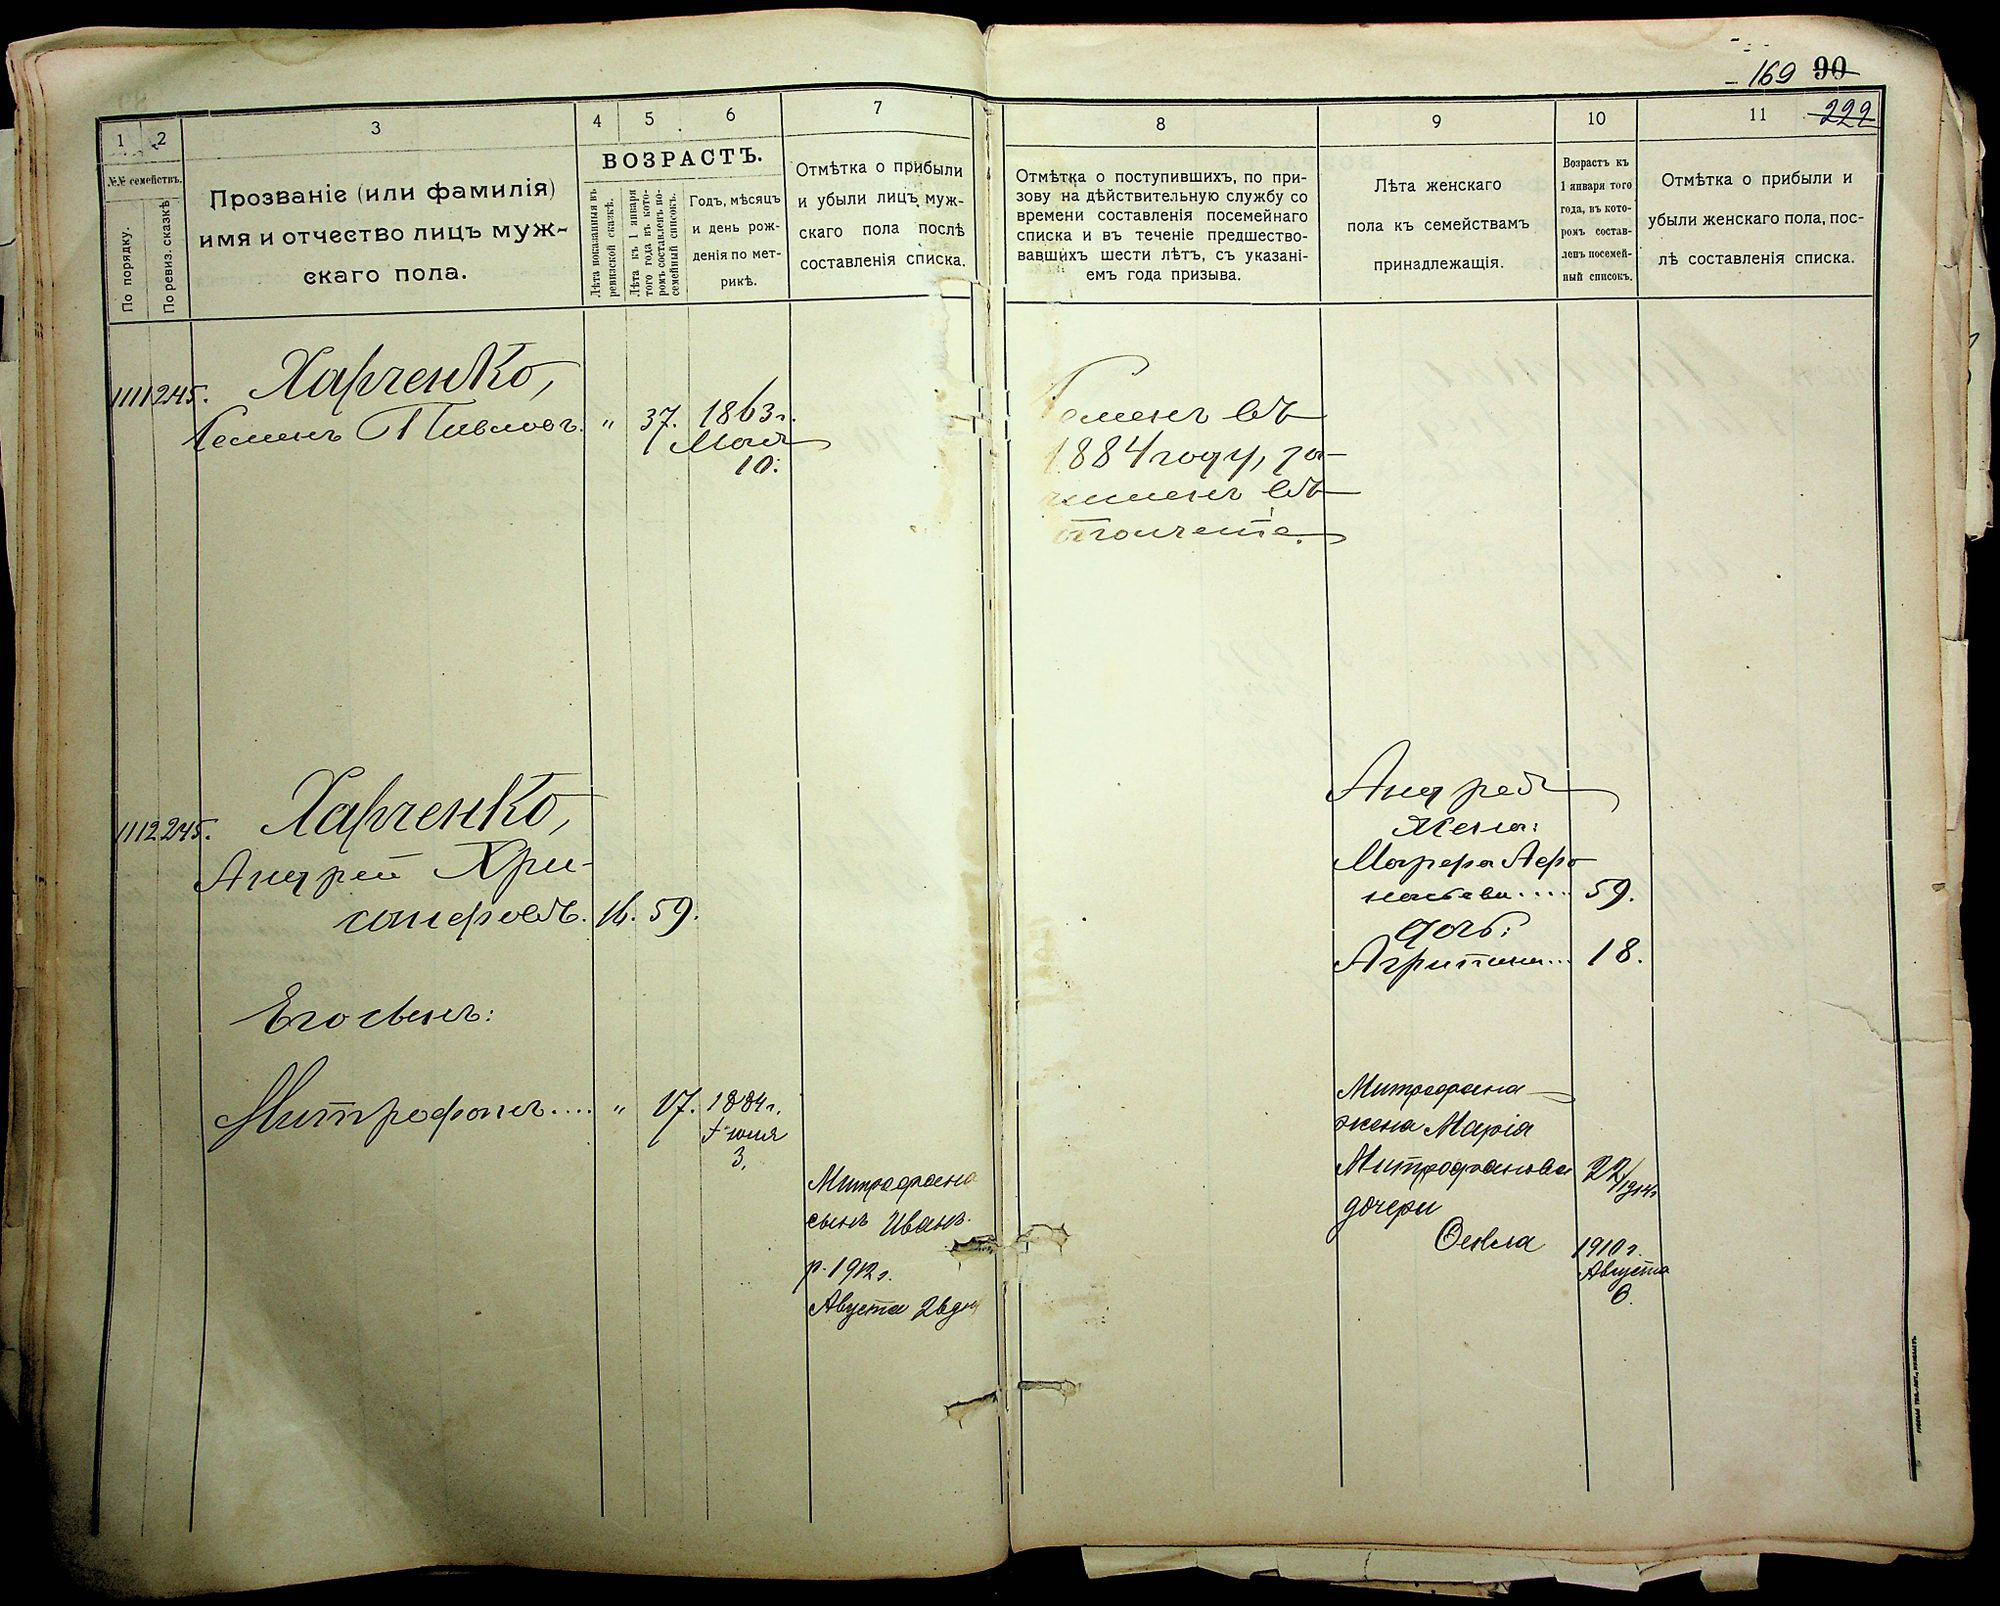 169 90
222
1
2
3
4
5
6
7
8
9
10
11
№№ семействъ.
По порядку.
По ревиз. сказкѣ
Прозваніе (или фамилія)
имя и отчество лицъ муж-
скаго пола.
ВОЗРАСТЪ.
Лѣта показанныя въ
ревизской сказкѣ.
Лѣта къ 1 января
того года въ кото-
ромъ составленъ по-
семейный списокъ.
Годъ, мѣсяцъ
и день рож-
денія по мет-
рикѣ.
Отмѣтка о прибыли
и убыли лицъ муж-
скаго пола послѣ
составленія списка.
Отмѣтка о поступившихъ, по при-
зову на дѣйствительную службу со
времени составленія посемейнаго
списка и въ теченіе предшество-
вавшихъ шести лѣтъ, съ указані-
емъ года призыва.
Лѣта женскаго
пола къ семействамъ
принадлежащія.
Возрастъ къ
1 января того
года, въ кото-
ромъ состав-
ленъ посемей-
ный списокъ.
Отмѣтка о прибыли и
убыли женскаго пола, пос-
лѣ составленія списка.
1111 245. Харченко,
Семенъ Павловъ. „ 37. 1863 г.
Мая
10.
Семенъ въ
1884 году, за-
численъ въ
ополченіе.
1112 245. Харченко,
Андрей Хри-
санфовъ. 16. 59.
Его сынъ:
Митрофанъ.... „ 17. 1884 г.
Іюня
3.
Митрофана
сынъ Иванъ
р. 1912 г.
Августа 26 дня
Андрея
жена:
Марфа Афо
насьева..... 59.
дочь:
Агрипина... 18.
Митрофана
жена Марія
Митрофанова 22/1914 г
дочери
Фекла 1910 г.
Августа
6.